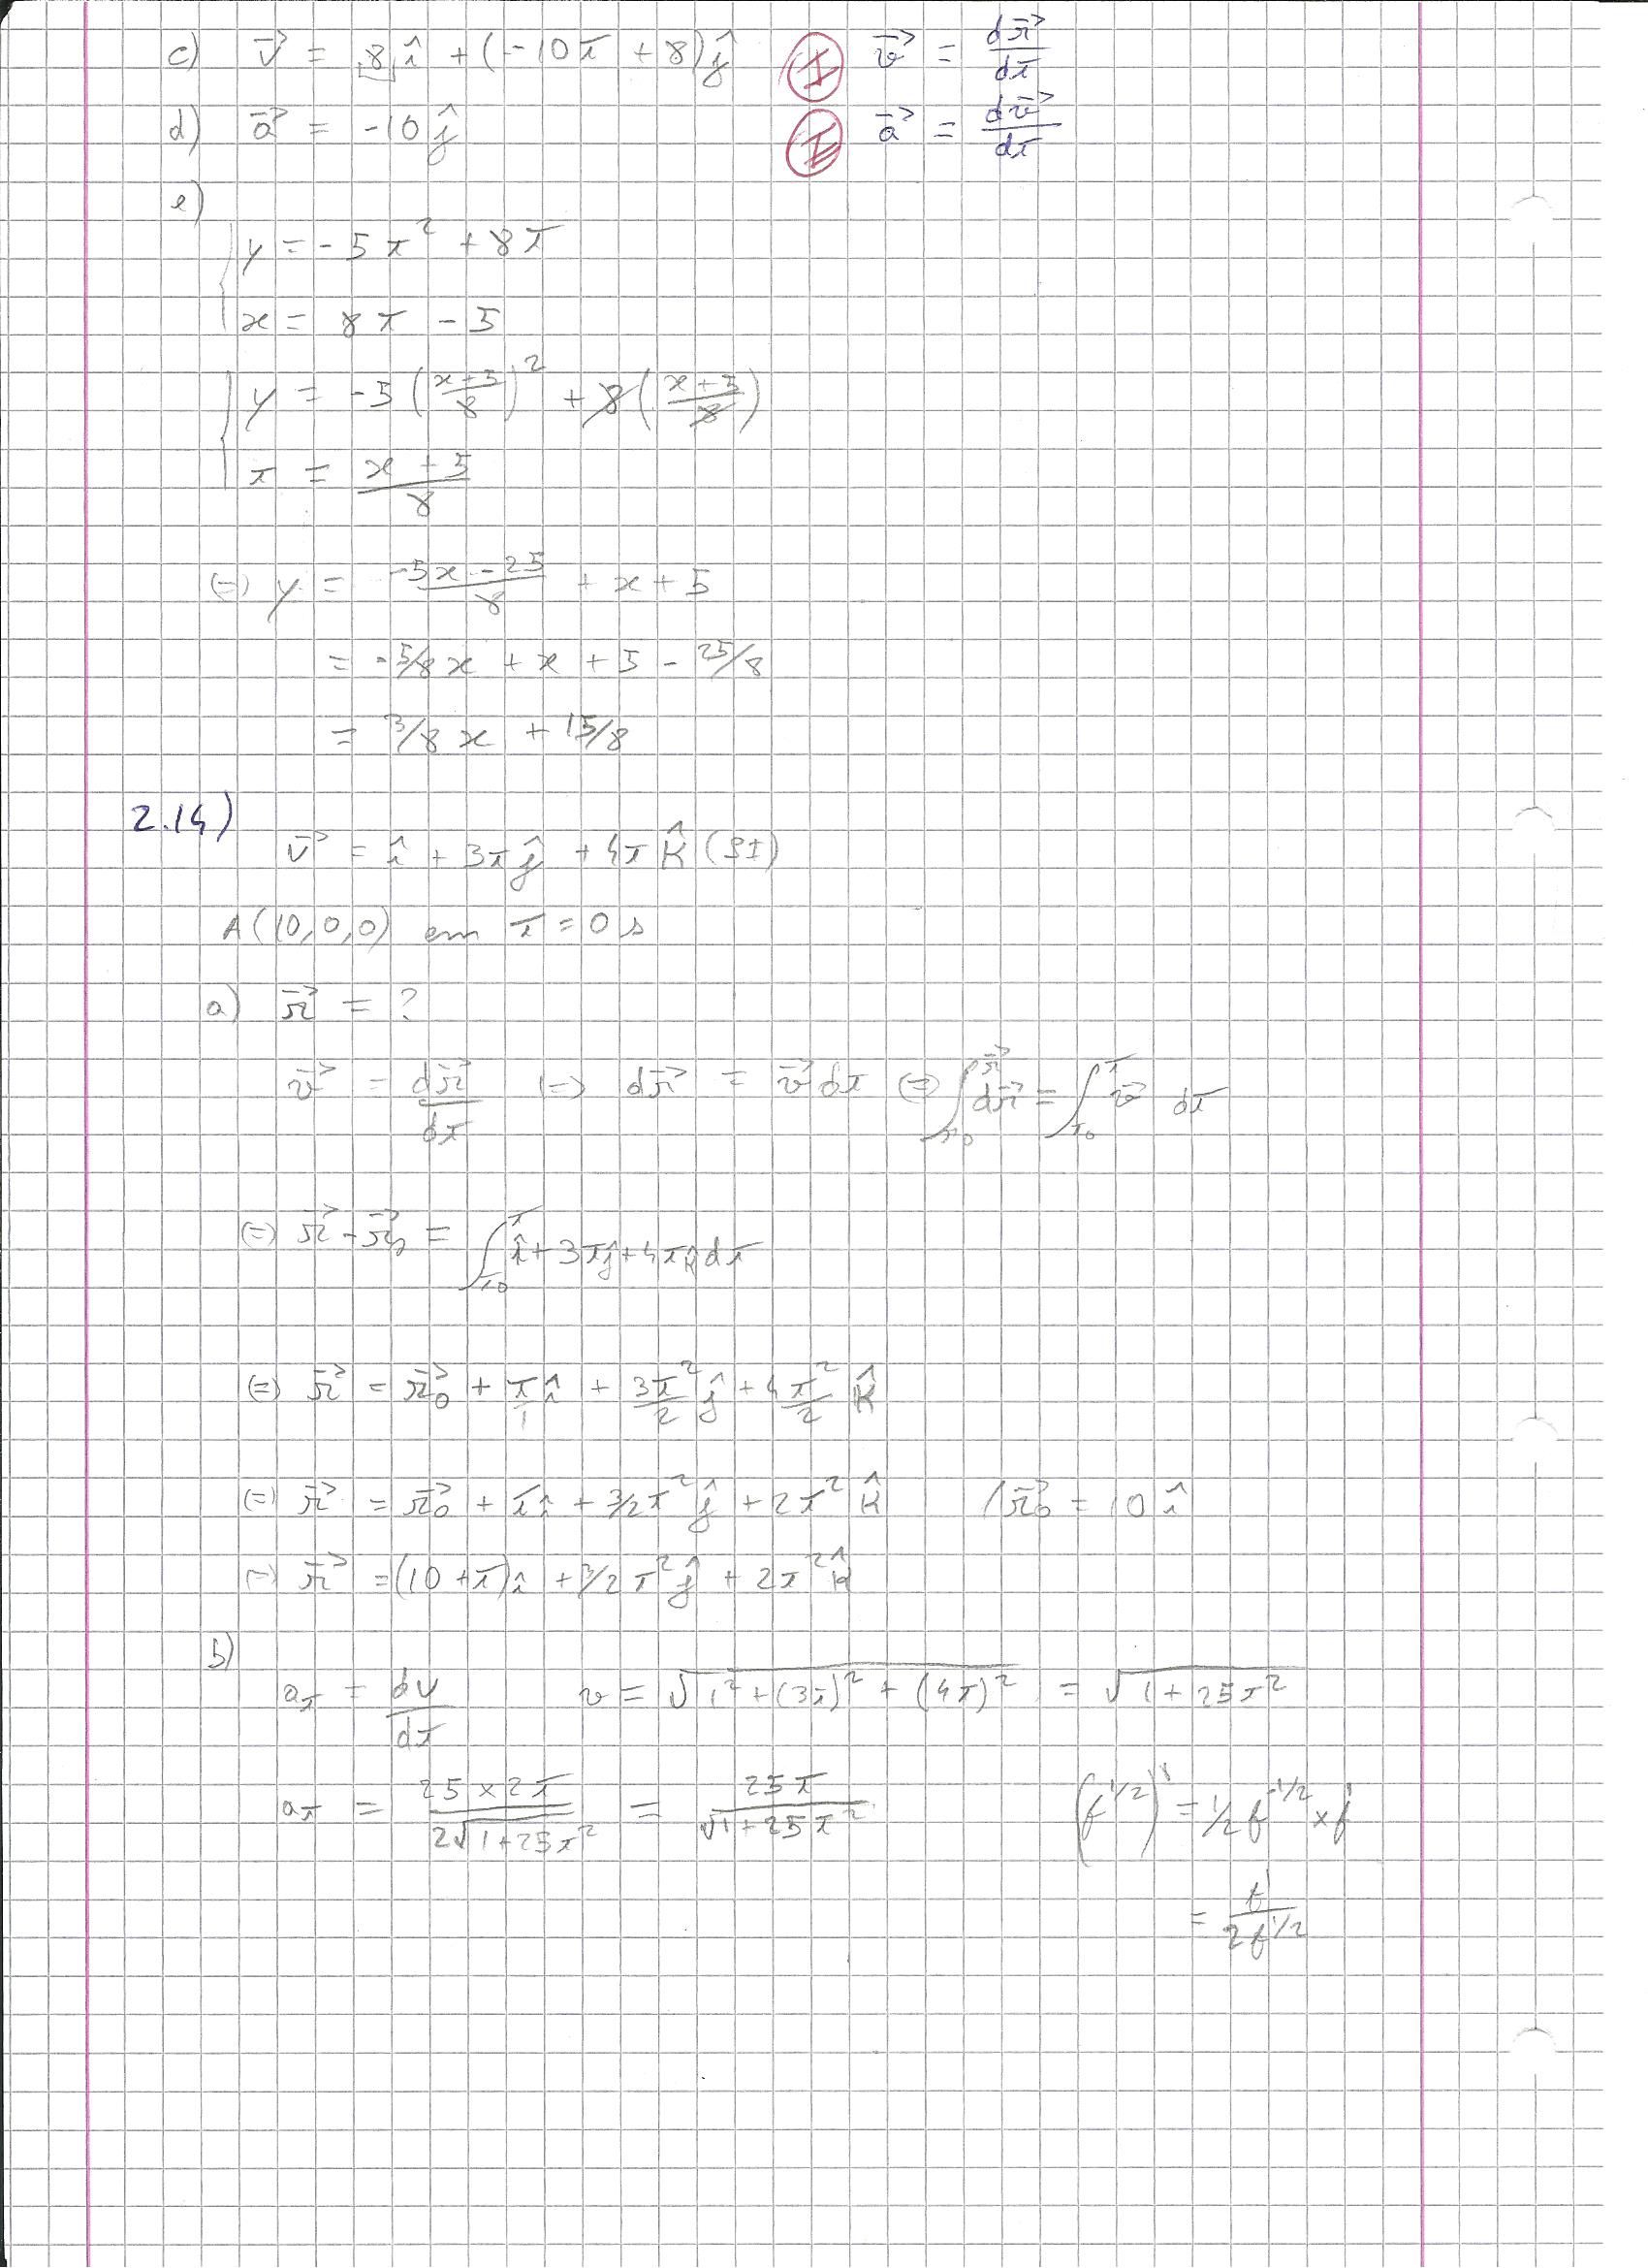 c) v⃗ = 8 î + (-10t + 8) ĵ   (I) v⃗ = dr⃗/dt
d) a⃗ = -10 ĵ   (II) a⃗ = dv⃗/dt
e)
{ y = -5t² + 8t
x = 8t - 5
{ y = -5 ((x+5)/8)² + 8 ((x+5)/8)
t = (x+5)/8
(=) y = (-5x - 25)/8 + x + 5
= -5/8 x + x + 5 - 25/8
= 3/8 x + 15/8
2.14)
v⃗ = î + 3t ĵ + 4t k̂ (SI)
A(10,0,0) em t = 0 s
a) r⃗ = ?
v⃗ = dr⃗/dt (=) dr⃗ = v⃗ dt (=) ∫_{r0}^{r⃗} dr⃗ = ∫_{t0}^{t} v⃗ dt
(=) r⃗ - r⃗0 = ∫_{t0}^{t} î + 3t ĵ + 4t k̂ dt
(=) r⃗ = r⃗0 + t/1 î + 3t²/2 ĵ + 4 t²/2 k̂
(=) r⃗ = r⃗0 + t î + 3/2 t² ĵ + 2t² k̂   / r⃗0 = 10 î
(=) r⃗ = (10 + t) î + 3/2 t² ĵ + 2t² k̂
b)
at = dv/dt   v = √(1² + (3t)² + (4t)²) = √(1 + 25t²)
at = (25 × 2t)/(2√(1 + 25t²)) = 25t/√(1 + 25t²)   (f^{1/2})' = 1/2 f^{-1/2} × f'
= f'/(2f^{1/2})